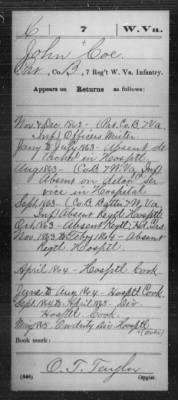 K 7 W.Va.
John Coe
Pvt, Co. B, 7 Reg't W. Va. Infantry.
Appears on Returns as follows:
Nov & Dec 1862 - Pvt Co. B 7 Va
Inf Officers Waiter
Jany to July 1863 - Absent de
tached in Hosptl
Aug 1863 - Co B W. Va. Inf
Absent on detach Ser
vice in Hospital
Sept 1863. Co B 7 W. Va
Inf Absent Regtl Hosptl
Oct 1863 - Absent Regtl
Nov 1863 to Feby 1864 - Absent
Regtl Hosptl
April 1864 - Hosptl Cook
June to Aug 1864 - Hosptl Cook.
Sept 1864 to April 1865 Div
Hosptl Cook.
May 1865 On duty Div Hosptl
(Cook)
Book mark:
O. T. Taylor
Copyist.